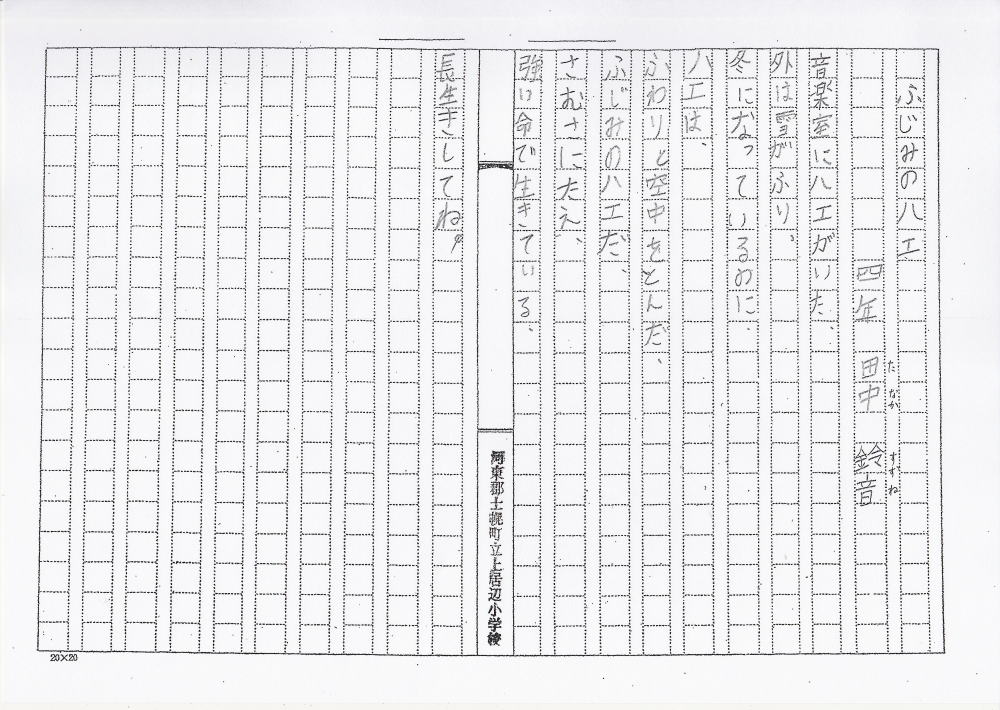 ふじみのハエ
四年 田中 鈴音
たなか すずね
音楽室にハエがいた。
外は雪がふり、
冬になっているのに、
ハエは、
ふわりと空中をとんだ。
ふじみのハエだ。
さむさにたえ、
強い命で生きている。
長生きしてね。
河東郡士幌町立上居辺小学校
20×20